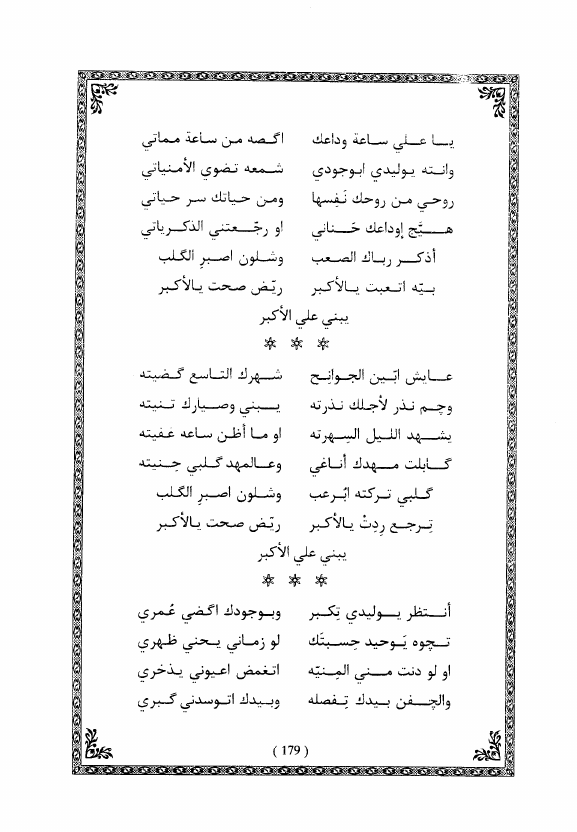 يـــا عـــلي ســـاعة وداعك اگـــصه مـن سـاعة مـماتي
وانـــته يـوليدي ابـوجودي شـــمعه تـضوي الأمـنياتي
روحـي مـن روحك نَـفِسها ومـن حـياتك سـر حـياتي
هـــيّج إوداعك حَـــناني او رجّـــعتني الذكـــرياتي
أذكـــر ربـاك الصـعب وشـــلون اصـبر الگـلب
بـيّه اتـعبت يـالأكـبر ريّـض صـحت يـالأكـبر
يبني علي الأكبر
* * *
عـــايش ابّـين الجـوانِـح شـــهرك التـاسع گـضيته
وچـم نـذر لأجـلك نـذرته يـــبني وصـــيارك تـنيته
يشـــهد اللـيل السـهرته او مـا أظـن ساعه غـفيته
گـــابلت مـــهدك أنـاغي وعـالمهد گـلبي حـنيته
گـلبي تـركته ابْـرعب وشـــلون اصـبر الگـلب
تِـرجـع رِدِتْ يـالأكـبر ريّـض صحت يـالأكـبر
يبني علي الأكبر
* * *
أنـــتظر يـــوليدي تِكـــبر وبـوجودك اگـضي عُـمري
تـــچوه يَـوحيد حِسـبتَك لو زمـاني يـحني ظـهري
او لو دنت مـــني المـنيّه اتـغمض اعـيوني يـذخري
والچـــفن بـيدك تِـفصله وبـيدك اتـوسدني گـبري
( 179 )